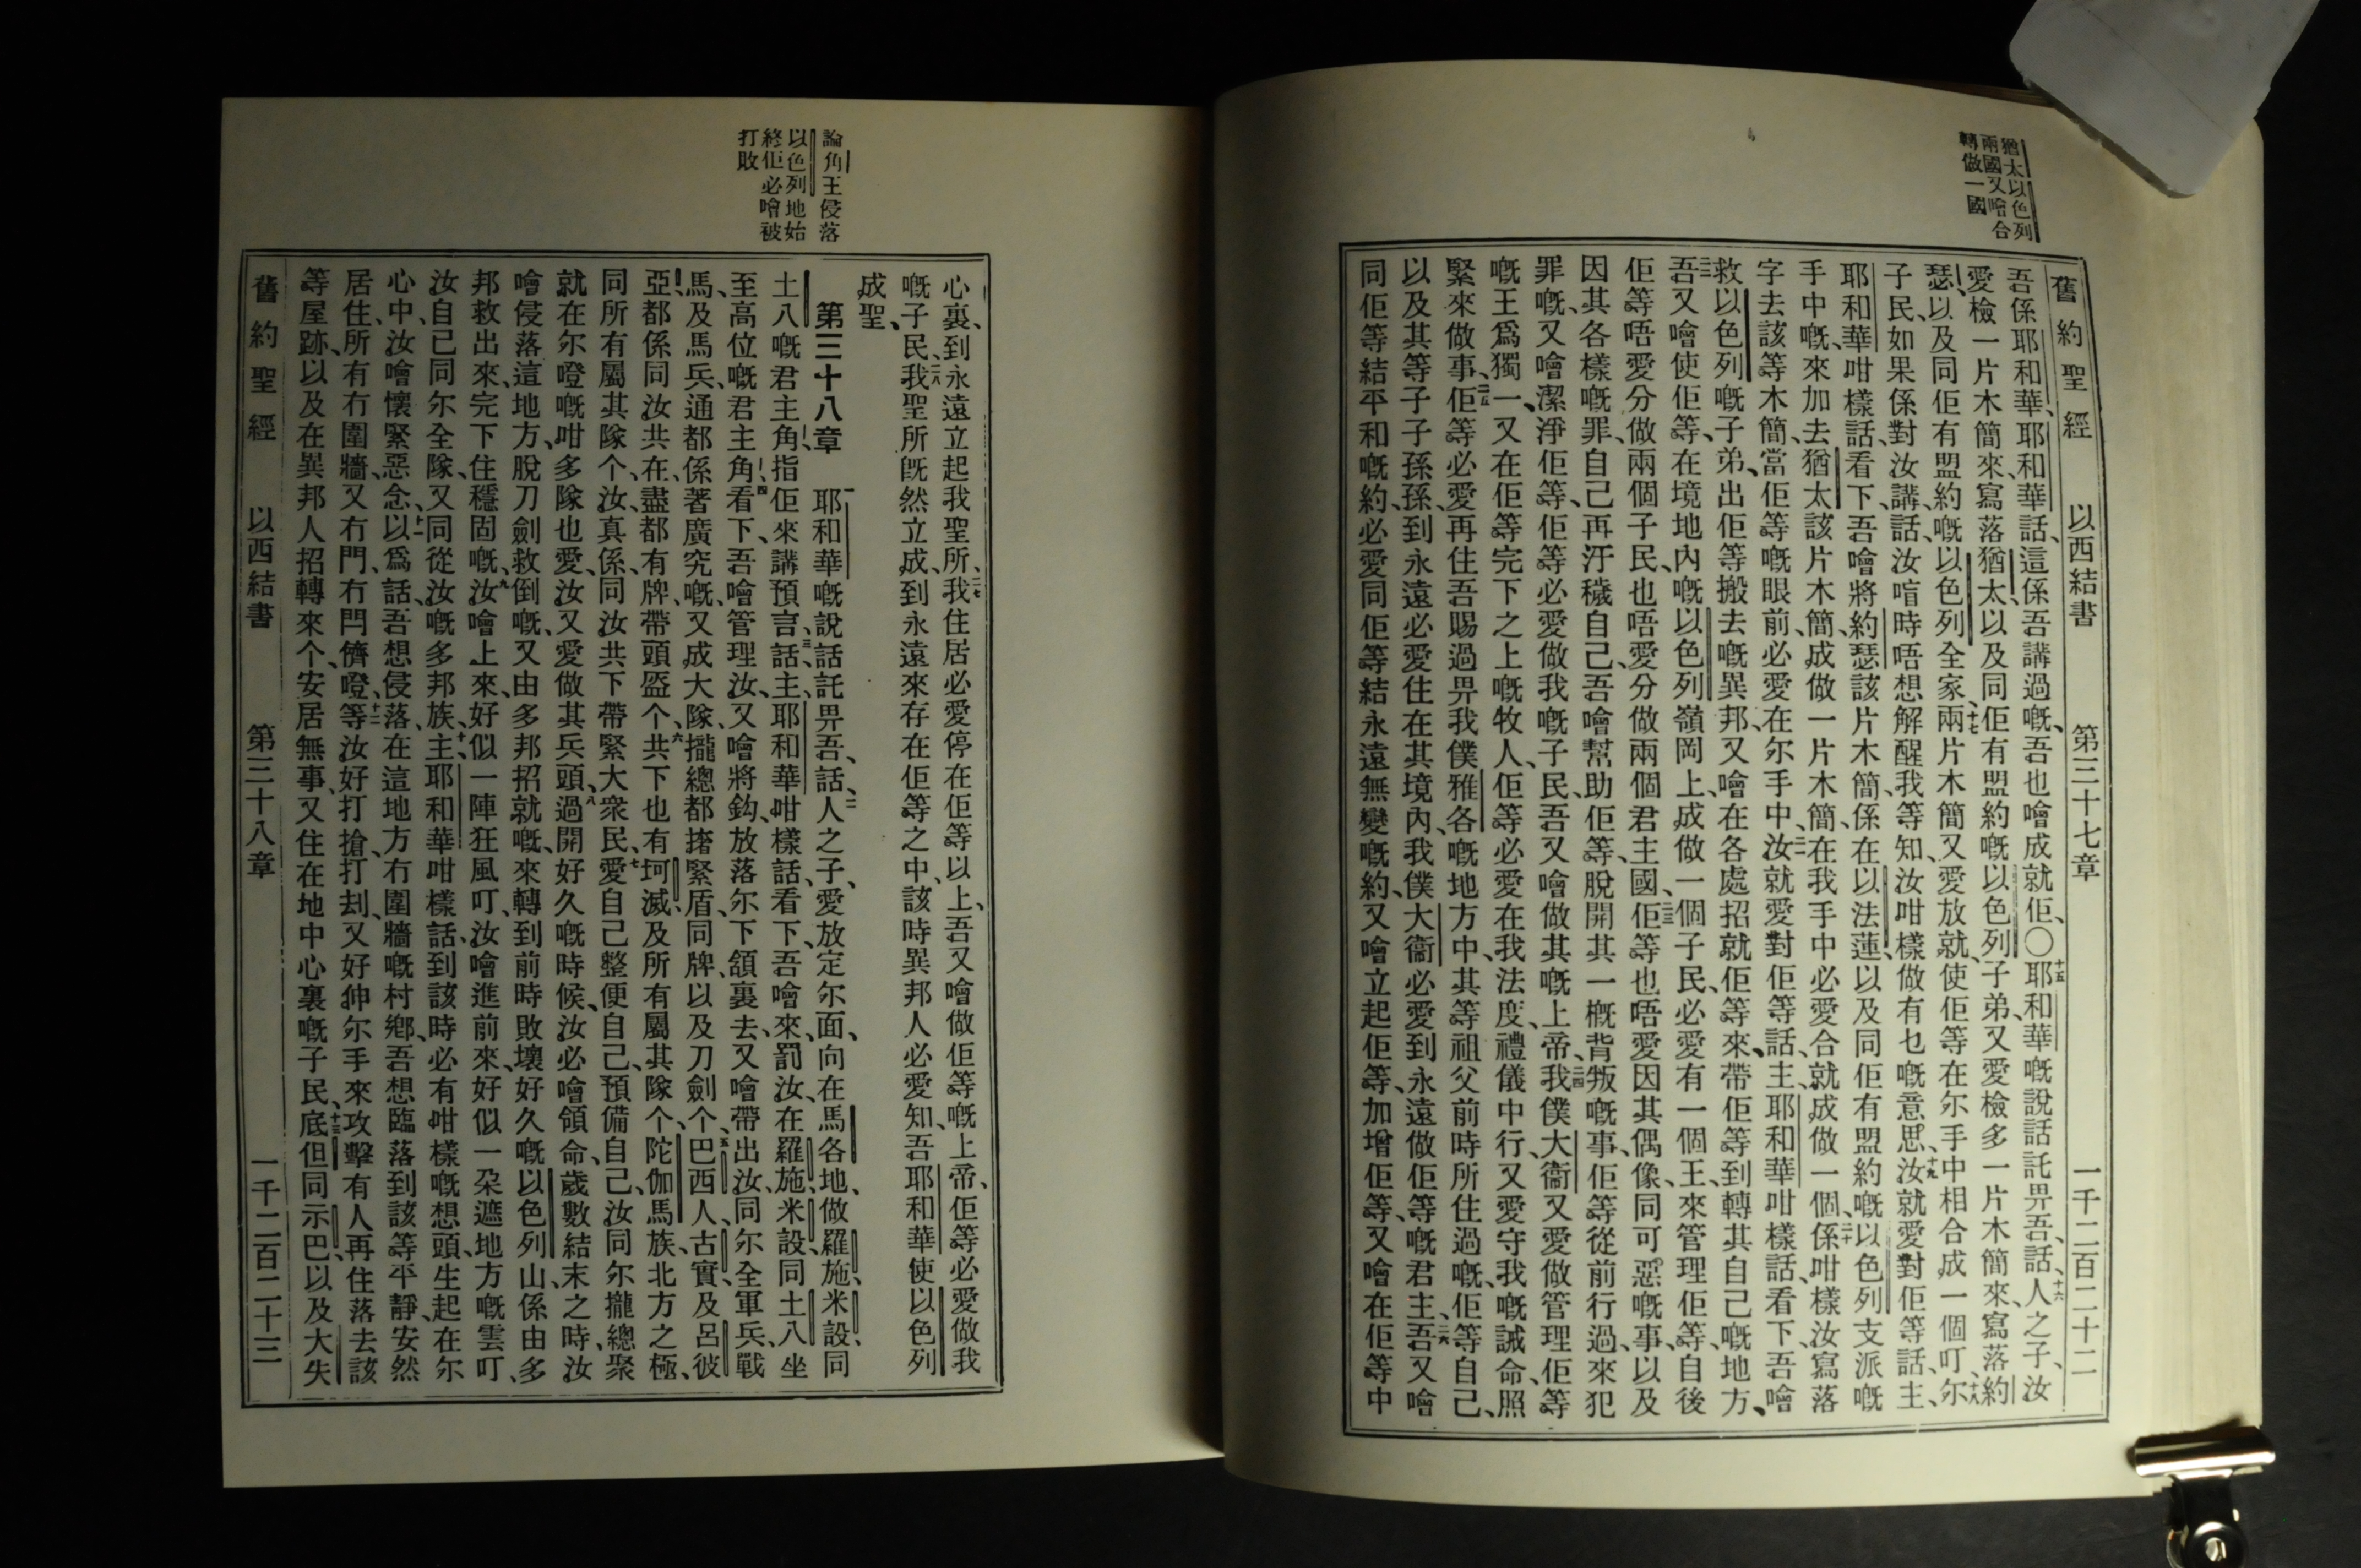 猶太以色列
兩國又噲合
轉做一國
舊約聖經 以西結書 第三十七章 一千二百二十二
吾係耶和華、耶和華話、這係吾講過嘅、吾也噲成就佢、〇十五耶和華嘅說話託畀吾、話、十六人之子、汝
愛檢一片木簡來、寫落猶太、以及同佢有盟約嘅以色列子弟、又愛檢多一片木簡來、寫落約
瑟、以及同佢有盟約嘅以色列全家、十七兩片木簡又愛放就、使佢等在尔手中相合成一個叮、十八尔
子民、如果係對汝講話、汝唁時唔想解醒我等知、汝咁樣做有乜嘅意思、十九汝就愛對佢等話、主
耶和華咁樣話、看下、吾噲將約瑟該片木簡、係在以法蓮、以及同佢有盟約嘅以色列支派嘅
手中嘅、來加去猶太該片木簡、成做一片木簡、在我手中必愛合就成做一個、二十係咁樣汝寫落
字去該等木簡、當佢等嘅眼前、必愛在尔手中、二一汝就愛對佢等話、主耶和華咁樣話、看下、吾噲
救以色列嘅子弟、出佢等搬去嘅異邦、又噲在各處招就佢等來、帶佢等到轉其自己嘅地方、
二二吾又噲使佢等、在境地內嘅以色列嶺岡上、成做一個子民、必愛有一個王來管理佢等、自後
佢等唔愛分做兩個子民、也唔愛分做兩個君主國、二三佢等也唔愛因其偶像、同可惡嘅事、以及
因其各樣嘅罪、自己再汙穢自己、吾噲幫助佢等、脫開其一概背叛嘅事、佢等從前行過、來犯
罪嘅、又噲潔淨佢等、佢等必愛做我嘅子民、吾又噲做其嘅上帝、二四我僕大衞又愛做管理佢等
嘅王為獨一、又在佢等完下之上嘅牧人、佢等必愛在我法度、禮儀中行、又愛守我嘅誡命、照
緊來做事、二五佢等必愛再住吾賜過畀我僕雅各嘅地方中、其等祖父前時所住過嘅、佢等自己、
以及其等子子孫孫、到永遠必愛住在其境內、我僕大衞必愛到永遠做佢等嘅君主、二六吾又噲
同佢等結平和嘅約、必愛同佢等結永遠無變嘅約、又噲立起佢等、加增佢等、又噲在佢等中
論角王侵落
以色列地始
終佢必噲被
打敗
心裏、到永遠立起我聖所、二七我住居必愛停在佢等以上、吾又噲做佢等嘅上帝、佢等必愛做我
嘅子民、二八我聖所旣然立成、到永遠來存在佢等之中、該時異邦人必愛知、吾耶和華使以色列
成聖、
第三十八章 一耶和華嘅說話託畀吾、話、二人之子、愛放定尔面、向在馬各地、做羅施、米設、同
土八嘅君主角、指佢來講預言、三話、主耶和華咁樣話、看下、吾噲來罰汝、在羅施、米設、同土八坐
至高位嘅君主角、四看下、吾噲管理汝、又噲將鈎、放落尔下頷裏去、又噲帶出汝、同尔全軍兵、戰
馬、及馬兵、通都係著廣究嘅、又成大隊、攏總都撦緊盾、同牌、以及刀劍个、五巴西人、古實、及呂彼
亞、都係同汝共在、盡都有牌、帶頭盔个、六共下也有坷滅、及所有屬其隊个、陀伽馬族、北方之極、
同所有屬其隊个、汝真係同汝共下帶緊大衆民、七愛自己整便自己、預備自己、汝同尔攏總聚
就在尔噔嘅咁多隊也愛、汝又愛做其兵頭、八過開好久嘅時候、汝必噲領命、歲數結末之時、汝
噲侵落這地方、脫刀劍救倒嘅、又由多邦招就嘅、來轉到前時敗壞好久嘅以色列山、係由多
邦救出來、完下住穩固嘅、九汝噲上來、好似一陣狂風叮、汝噲進前來、好似一朶遮地方嘅雲叮、
汝自己同尔全隊、又同從汝嘅多邦族、十主耶和華咁樣話、到該時必有咁樣嘅想頭、生起在尔
心中、汝噲懷緊惡念、十一以為話、吾想侵落在這地方冇圍牆嘅村鄉、吾想臨落到該等平靜安然
居住、所有冇圍牆、又冇門、冇閂儕噔、十二等汝好打搶、打刦、又好伸尔手來攻擊有人再住落去該
等屋跡、以及在異邦人招轉來个、安居無事、又住在地中心裏嘅子民、十三底但、同示巴、以及大失
舊約聖經 以西結書 第三十八章 一千二百二十三